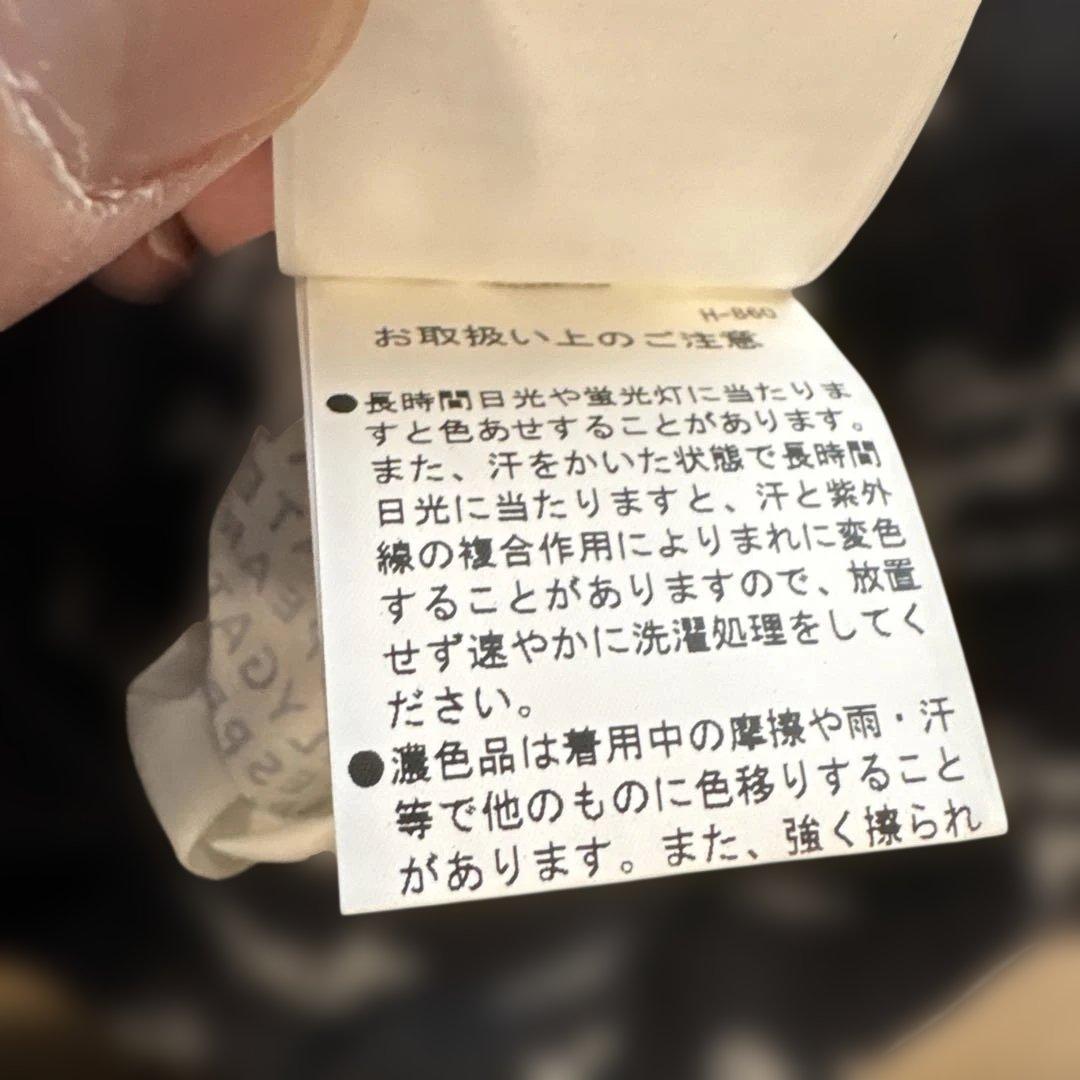 H-860
お取扱い上のご注意
●長時間日光や蛍光灯に当たりま
すと色あせすることがあります。
また、汗をかいた状態で長時間
日光に当たりますと、汗と紫外
線の複合作用によりまれに変色
することがありますので、放置
せず速やかに洗濯処理をしてく
ださい。
●濃色品は着用中の摩擦や雨・汗
等で他のものに色移りすること
があります。また、強く擦られ